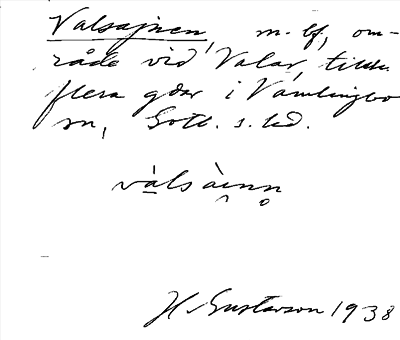 Valsajnen, m. bf, om-
råde vid Valar, tillh.
flera gdar i Vamlingbo
sn, Gotl. s. hd.
vàlsàinn
H. Gustavson 1938